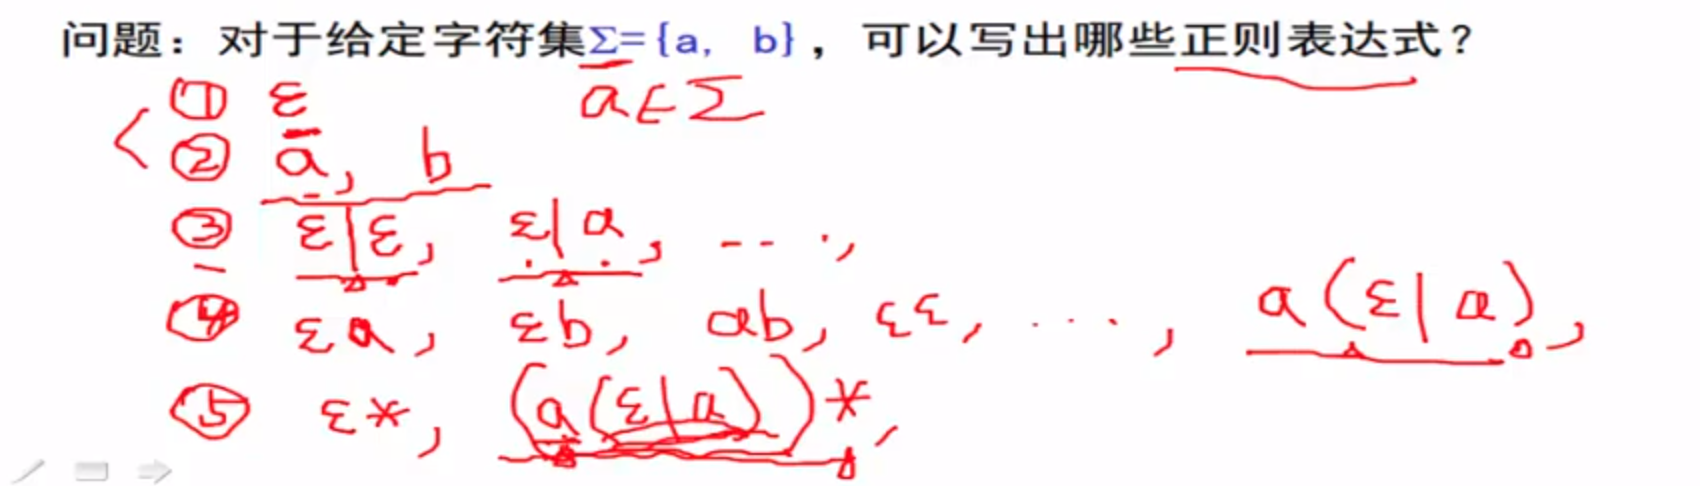 问题：对于给定字符集Σ={a, b}，可以写出哪些正则表达式？
① ε a∈Σ
② a, b
③ ε|ε, ε|a, ...,
④ εa, εb, ab, εε, ..., a(ε|a),
⑤ ε*, (a(ε|a))*,